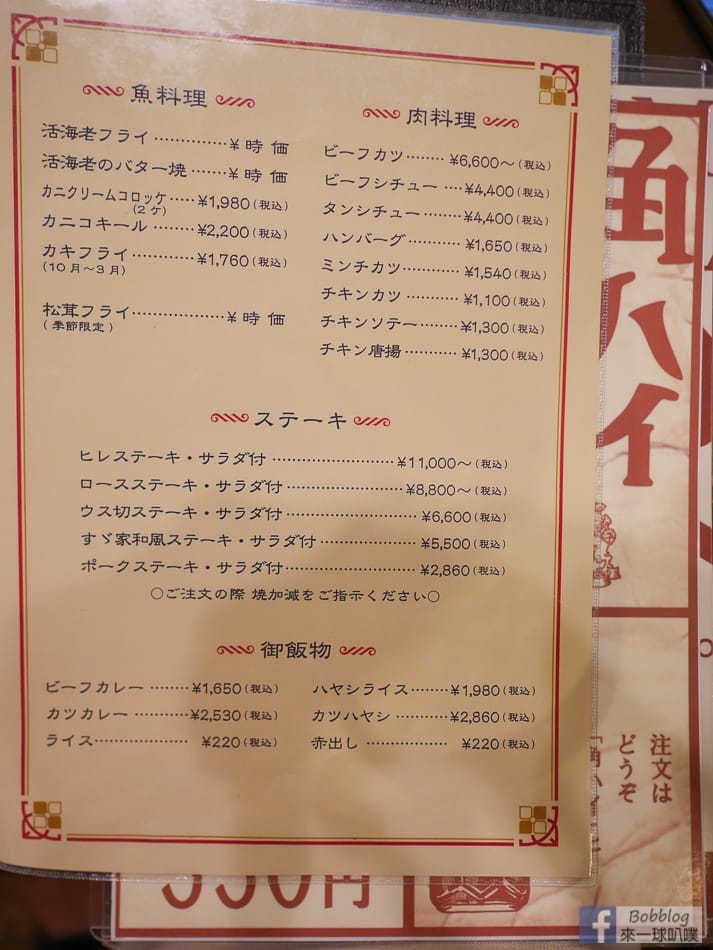 魚料理
活海老フライ ………… ¥時価
活海老のバター焼 …… ¥時価
カニクリームコロッケ …… ¥1,980(税込)
(2ケ)
カニコキール ……… ¥2,200(税込)
カキフライ ………… ¥1,760(税込)
(10月～3月)
松茸フライ ……………… ¥時価
(季節限定)
肉料理
ビーフカツ …… ¥6,600～(税込)
ビーフシチュー …… ¥4,400(税込)
タンシチュー ……… ¥4,400(税込)
ハンバーグ ……… ¥1,650(税込)
ミンチカツ ………… ¥1,540(税込)
チキンカツ ………… ¥1,100(税込)
チキンソテー ……… ¥1,300(税込)
チキン唐揚 ………… ¥1,300(税込)
ステーキ
ヒレステーキ・サラダ付 …………………… ¥11,000～(税込)
ロースステーキ・サラダ付 …………………… ¥8,800～(税込)
ウス切ステーキ・サラダ付 ……………………… ¥6,600(税込)
すゞ家和風ステーキ・サラダ付 ……………… ¥5,500(税込)
ポークステーキ・サラダ付 ……………………… ¥2,860(税込)
○ご注文の際 焼加減をご指示ください○
御飯物
ビーフカレー …… ¥1,650(税込)
カツカレー ……… ¥2,530(税込)
ライス ……………… ¥220(税込)
ハヤシライス …… ¥1,980(税込)
カツハヤシ ……… ¥2,860(税込)
赤出し …………… ¥220(税込)
角ハイ
注文は
どうぞ
円
Bobblog
來一球叭噗